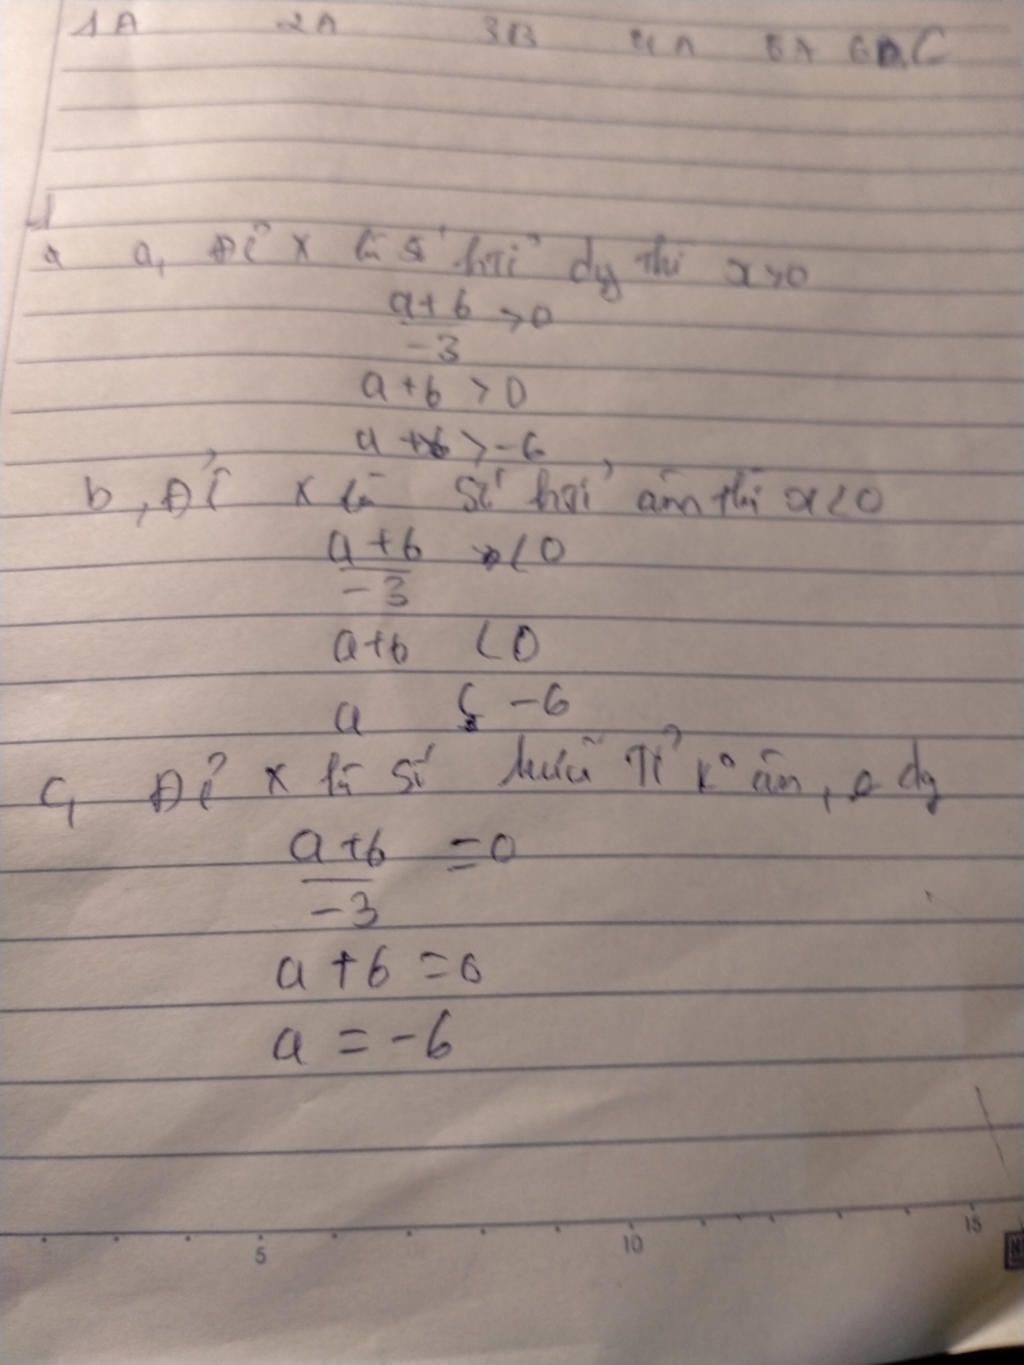 1A 2A 3B 4A 5A 6 C
a, Để x là số hữu dg thì x>0
a+6 >0
-3
a+6 > 0
a +6 >-6
b, Để x là số hữu âm thì x<0
a+6 <0
-3
a+6 <0
a < -6
c, Để x là số hữu tỉ k° âm, dg
a+6 =0
-3
a+6=0
a = -6
5 10 15